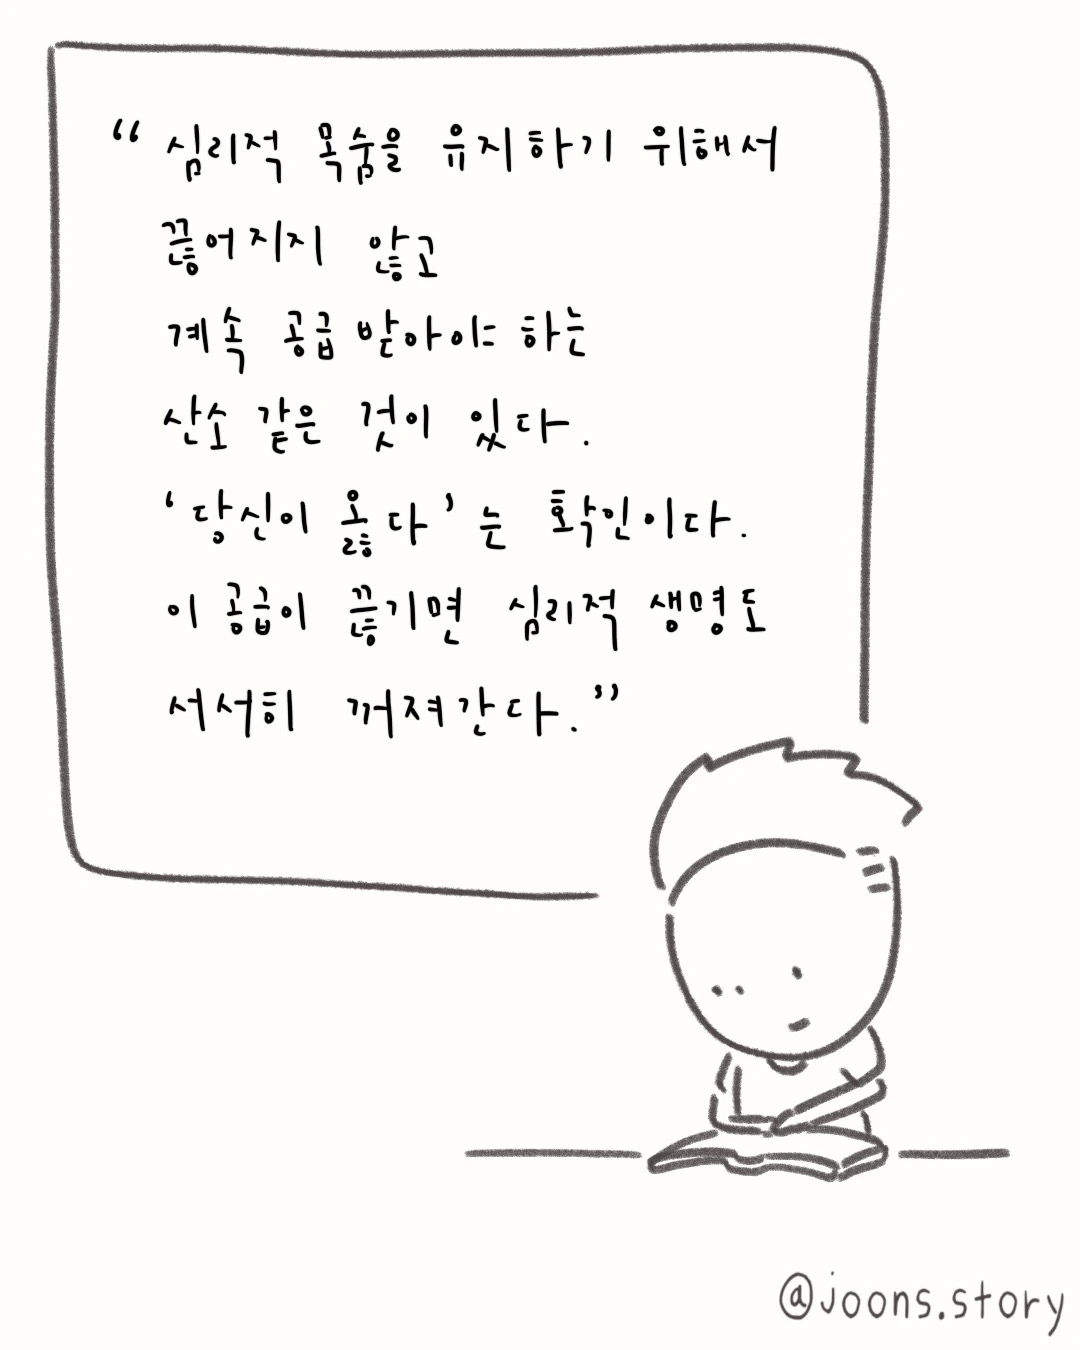 “ 심리적 목숨을 유지하기 위해서
끊어지지 않고
계속 공급 받아야 하는
산소 같은 것이 있다.
‘당신이 옳다’는 확인이다.
이 공급이 끊기면 심리적 생명도
서서히 꺼져간다.”
@joons.story